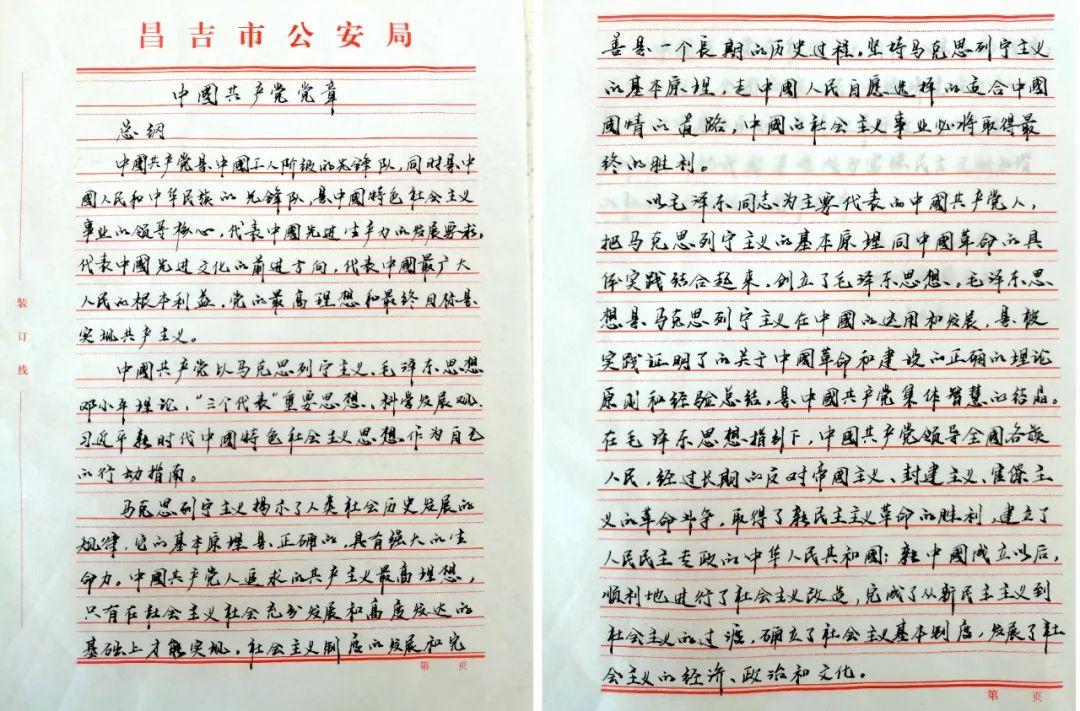 昌吉市公安局
中國共产党党章
总纲
中國共产党是中國工人阶级的先锋队，同时是中
國人民和中华民族的先锋队，是中國特色社会主义
事业的领导核心，代表中國先进生产力的发展要求，
代表中國先进文化的前进方向，代表中國最广大
人民的根本利益。党的最高理想和最终目标是
实现共产主义。
中國共产党以马克思列宁主义、毛泽东思想
邓小平理论、“三个代表”重要思想、科学发展观、
习近平新时代中國特色社会主义思想作为自己
的行动指南。
马克思列宁主义揭示了人类社会历史发展的
规律，它的基本原理是正确的，具有强大的生
命力。中國共产党人追求的共产主义最高理想，
只有在社会主义社会充分发展和高度发达的
基础上才能实现。社会主义制度的发展和完
装订线
第 页
善是一个長期的历史过程。坚持马克思列宁主义
的基本原理，走中國人民自愿选择的适合中國
國情的道路，中國的社会主义事业必将取得最
终的胜利。
以毛泽东同志为主要代表的中國共产党人，
把马克思列宁主义的基本原理同中國革命的具
体实践结合起来，创立了毛泽东思想。毛泽东思
想是马克思列宁主义在中國的运用和发展，是被
实践证明了的关于中國革命和建设的正确的理论
原则和经验总结，是中國共产党集体智慧的结晶。
在毛泽东思想指引下，中國共产党领导全国各族
人民，经过长期的反对帝國主义、封建主义、官僚主
义的革命斗争，取得了新民主主义革命的胜利，建立了
人民民主专政的中华人民共和國；新中國成立以后，
顺利地进行了社会主义改造，完成了从新民主主义到
社会主义的过渡，确立了社会主义基本制度，发展了社
会主义的经济、政治和文化。
第 页